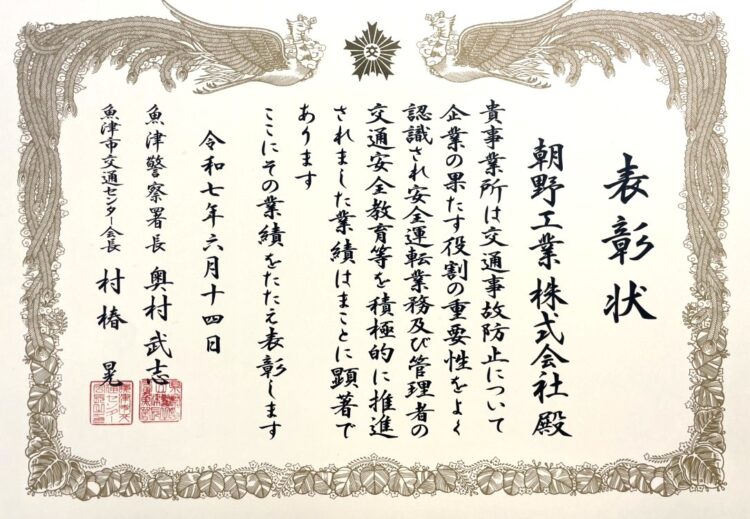 交
表彰状
朝野工業株式会社殿
貴事業所は交通事故防止について
企業の果たす役割の重要性をよく
認識され安全運転業務及び管理者の
交通安全教育等を積極的に推進
されました業績はまことに顕著で
あります
ここにその業績をたたえ表彰します
令和七年六月十四日
魚津警察署長 奥村武志
魚津市交通センター会長 村椿晃